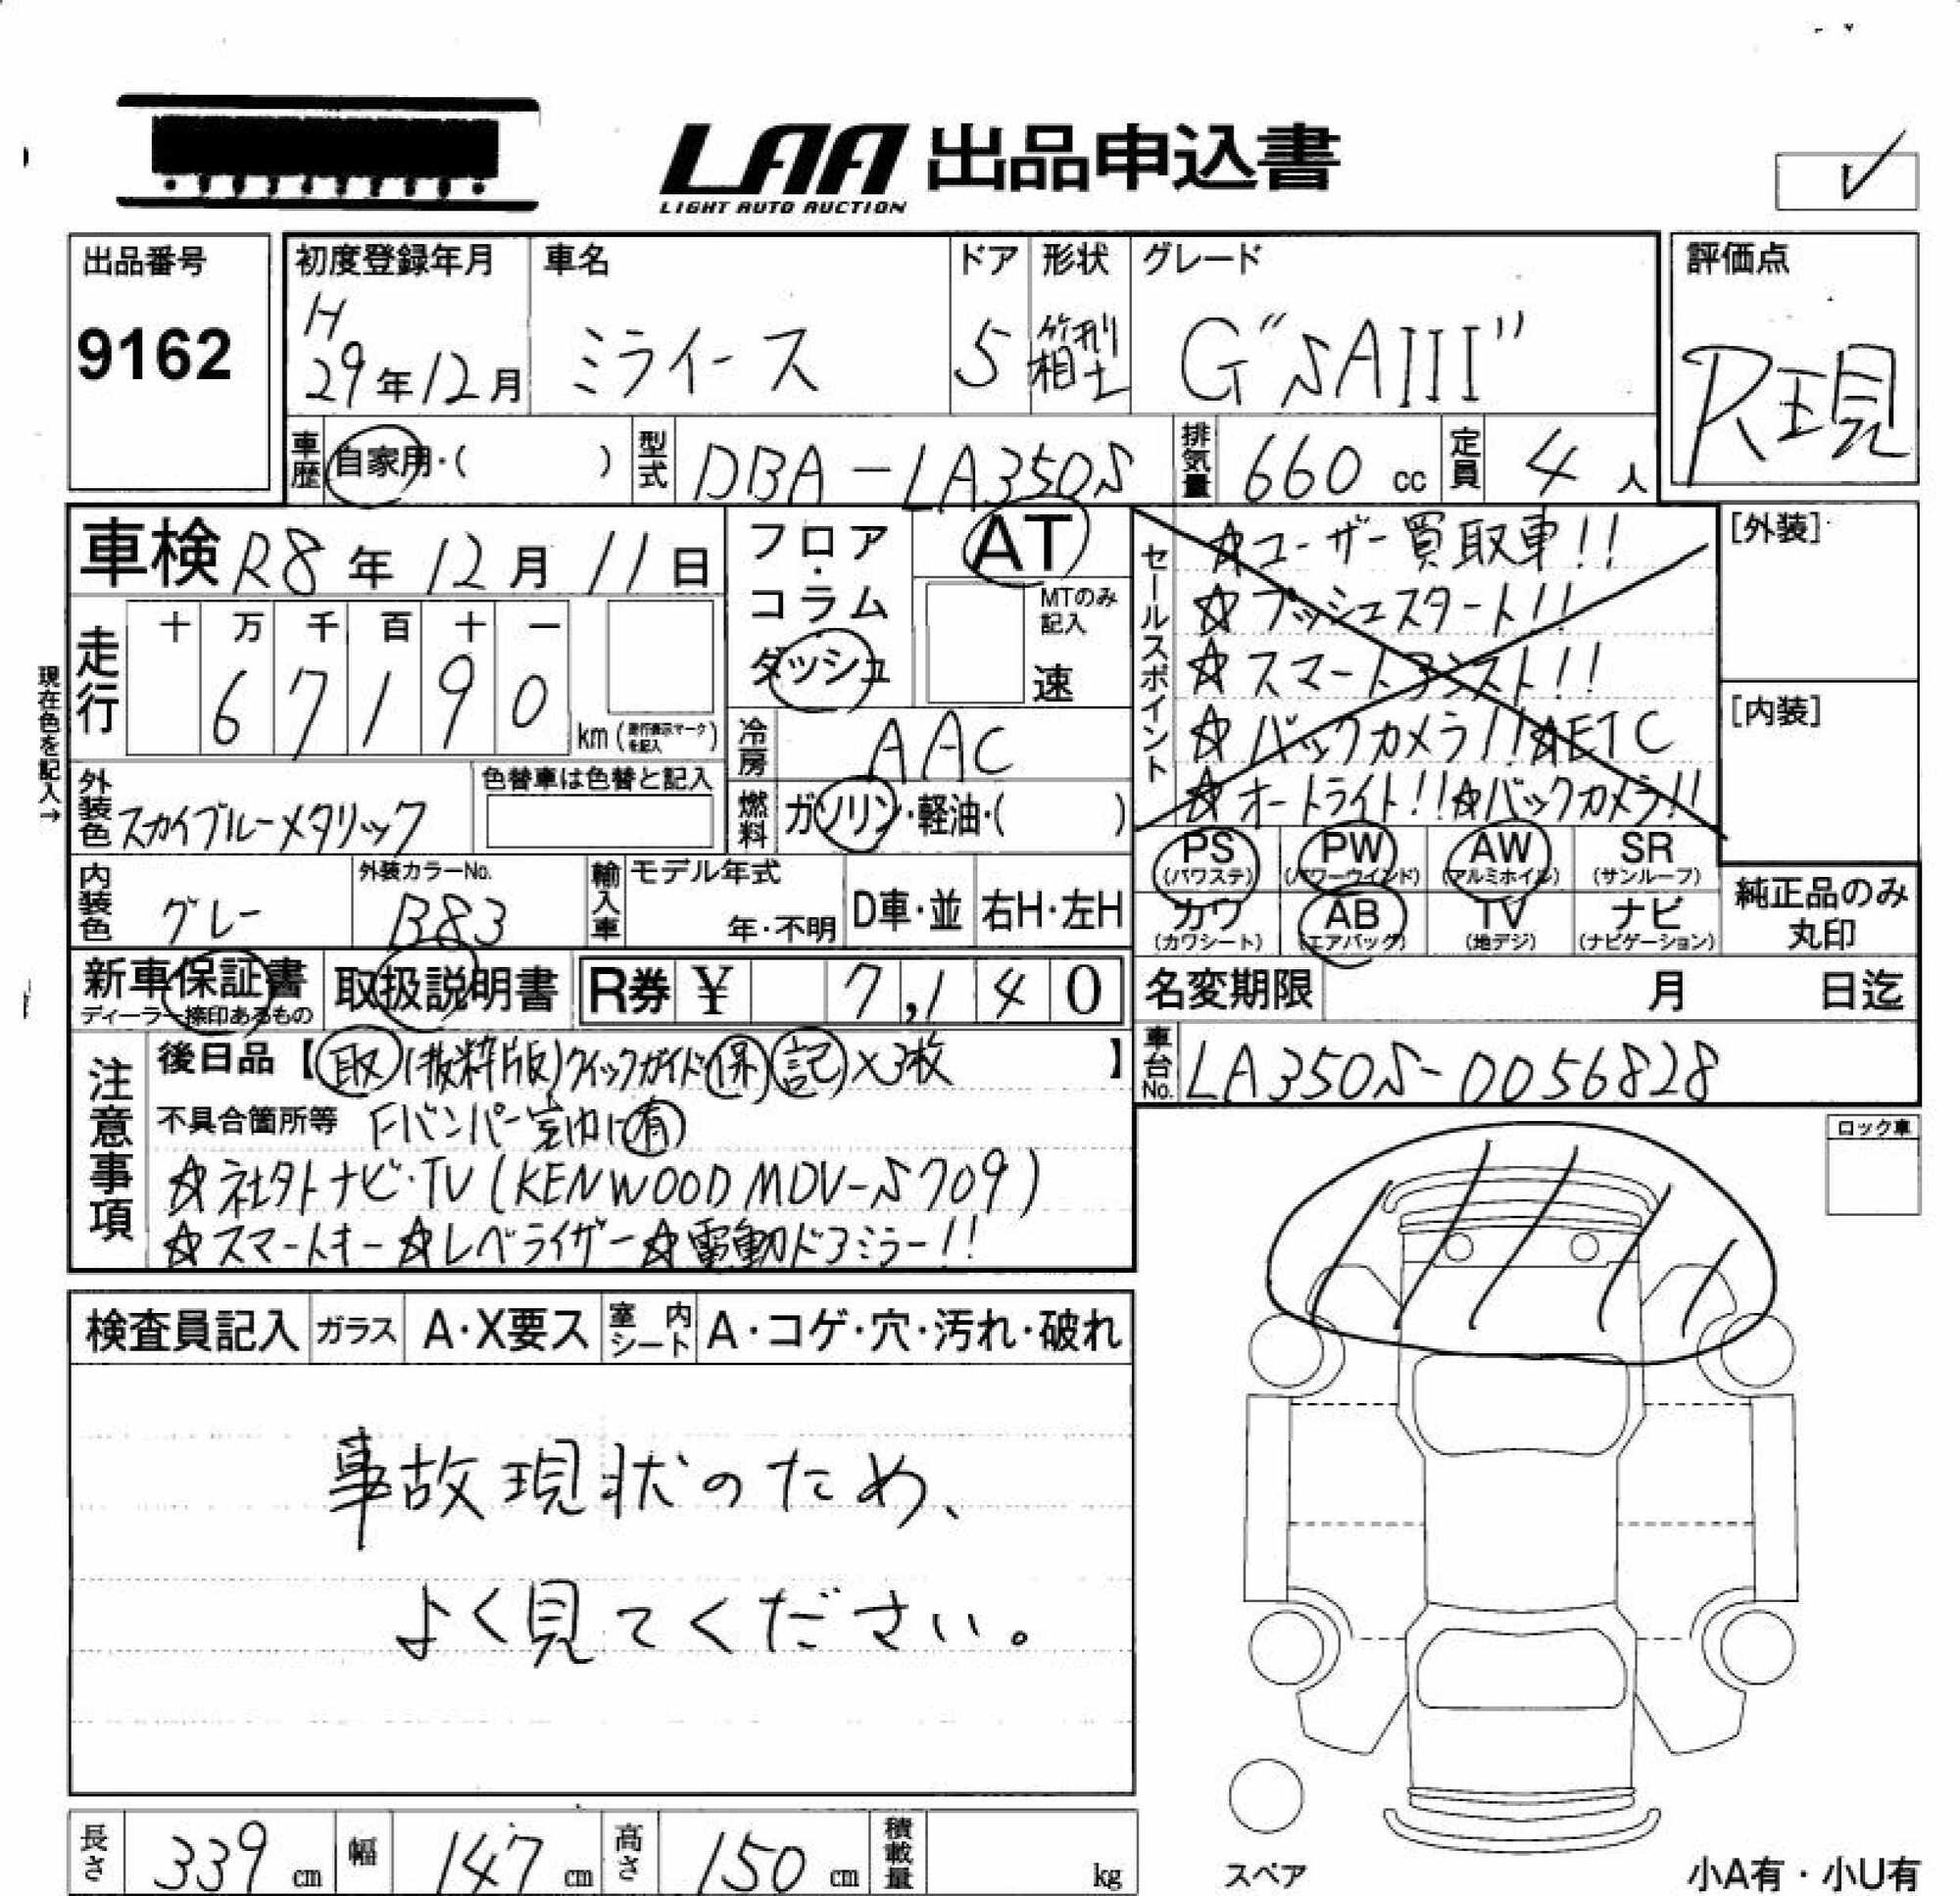 LAA 出品申込書
LIGHT AUTO AUCTION
出品番号
9162
初度登録年月
H
29年12月
車名
ミライース
ドア
5
形状
箱型
グレード
G"SAIII"
評価点
R現
車歴 自家用・( )
型式 DBA-LA350S
排気量 660 cc
定員 4 人
車検 R8年12月11日
走行
十 万 千 百 十 一
6 7 1 9 0
km (走行表示マークを記入)
現在色を記入→
フロア・コラム
ダッシュ
AT
MTのみ記入
速
冷房 AAC
燃料 ガソリン・軽油・( )
外装色 スカイブルーメタリック
色替車は色替と記入
内装色 グレー
外装カラーNo. B83
輸入車
モデル年式
年・不明
D車・並
右H・左H
セールスポイント
☆ユーザー買取車!!
☆プッシュスタート!!
☆スマートアシスト!!
☆バックカメラ!!☆ETC
☆オートライト!!☆バックカメラ!!
[外装]
[内装]
PS (パワステ)
PW (パワーウインド)
AW (アルミホイル)
SR (サンルーフ)
カワ (カワシート)
AB (エアバッグ)
TV (地デジ)
ナビ (ナビゲーション)
純正品のみ
丸印
新車保証書
ディーラー捺印あるもの
取扱説明書
R券 ¥ 7,140
名変期限 月 日迄
車台No. LA350S-0056828
注意事項
後日品【取(抜粋版)クイックガイド保 記×3枚】
不具合箇所等 Fバンパー室内に有
☆社外ナビ・TV(KENWOOD MDV-S709)
☆スマートキー☆レベライザー☆電動ドアミラー!!
ロック車
検査員記入
ガラス A・X要ス
室内シート A・コゲ・穴・汚れ・破れ
事故現状のため、
よく見てください。
長さ 339 cm
幅 147 cm
高さ 150 cm
積載量 kg
スペア
小A有・小U有